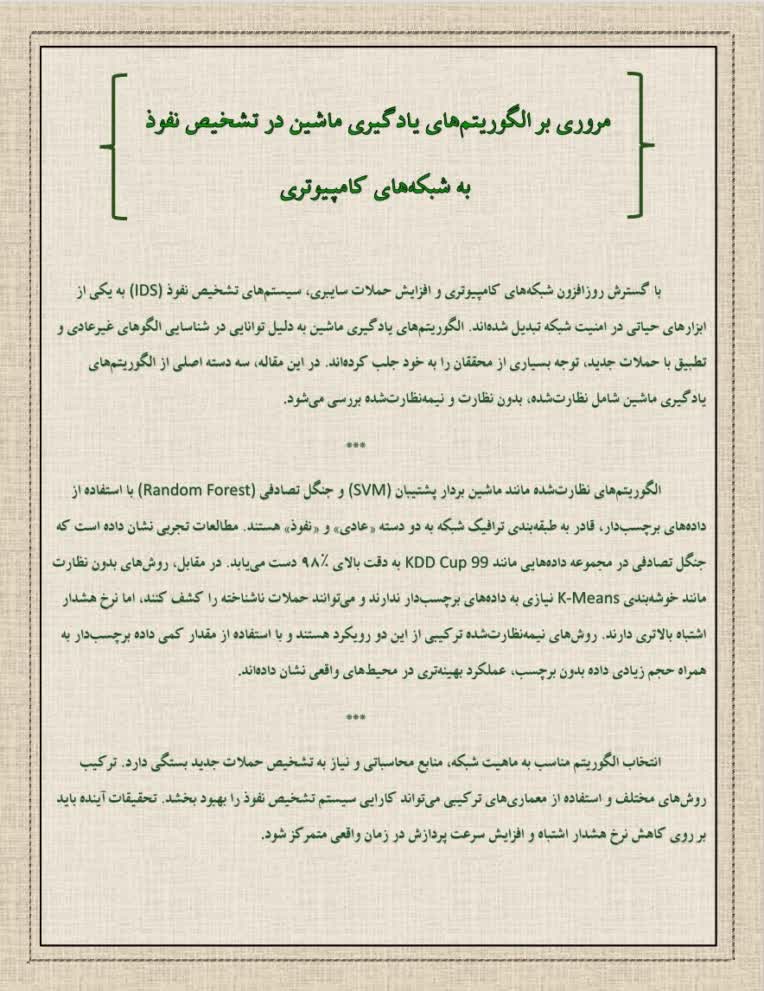 مروری بر الگوریتم‌های یادگیری ماشین در تشخیص نفوذ
به شبکه‌های کامپیوتری
با گسترش روزافزون شبکه‌های کامپیوتری و افزایش حملات سایبری، سیستم‌های تشخیص نفوذ (IDS) به یکی از
ابزارهای حیاتی در امنیت شبکه تبدیل شده‌اند. الگوریتم‌های یادگیری ماشین به دلیل توانایی در شناسایی الگوهای غیرعادی و
تطبیق با حملات جدید، توجه بسیاری از محققان را به خود جلب کرده‌اند. در این مقاله، سه دسته اصلی از الگوریتم‌های
یادگیری ماشین شامل نظارت‌شده، بدون نظارت و نیمه‌نظارت‌شده بررسی می‌شود.
***
الگوریتم‌های نظارت‌شده مانند ماشین بردار پشتیبان (SVM) و جنگل تصادفی (Random Forest) با استفاده از
داده‌های برچسب‌دار، قادر به طبقه‌بندی ترافیک شبکه به دو دسته «عادی» و «نفوذ» هستند. مطالعات تجربی نشان داده است که
جنگل تصادفی در مجموعه داده‌هایی مانند KDD Cup 99 به دقت بالای ۹۸٪ دست می‌یابد. در مقابل، روش‌های بدون نظارت
مانند خوشه‌بندی K-Means نیازی به داده‌های برچسب‌دار ندارند و می‌توانند حملات ناشناخته را کشف کنند، اما نرخ هشدار
اشتباه بالاتری دارند. روش‌های نیمه‌نظارت‌شده ترکیبی از این دو رویکرد هستند و با استفاده از مقدار کمی داده برچسب‌دار به
همراه حجم زیادی داده بدون برچسب، عملکرد بهینه‌تری در محیط‌های واقعی نشان داده‌اند.
***
انتخاب الگوریتم مناسب به ماهیت شبکه، منابع محاسباتی و نیاز به تشخیص حملات جدید بستگی دارد. ترکیب
روش‌های مختلف و استفاده از معماری‌های ترکیبی می‌تواند کارایی سیستم تشخیص نفوذ را بهبود بخشد. تحقیقات آینده باید
بر روی کاهش نرخ هشدار اشتباه و افزایش سرعت پردازش در زمان واقعی متمرکز شود.